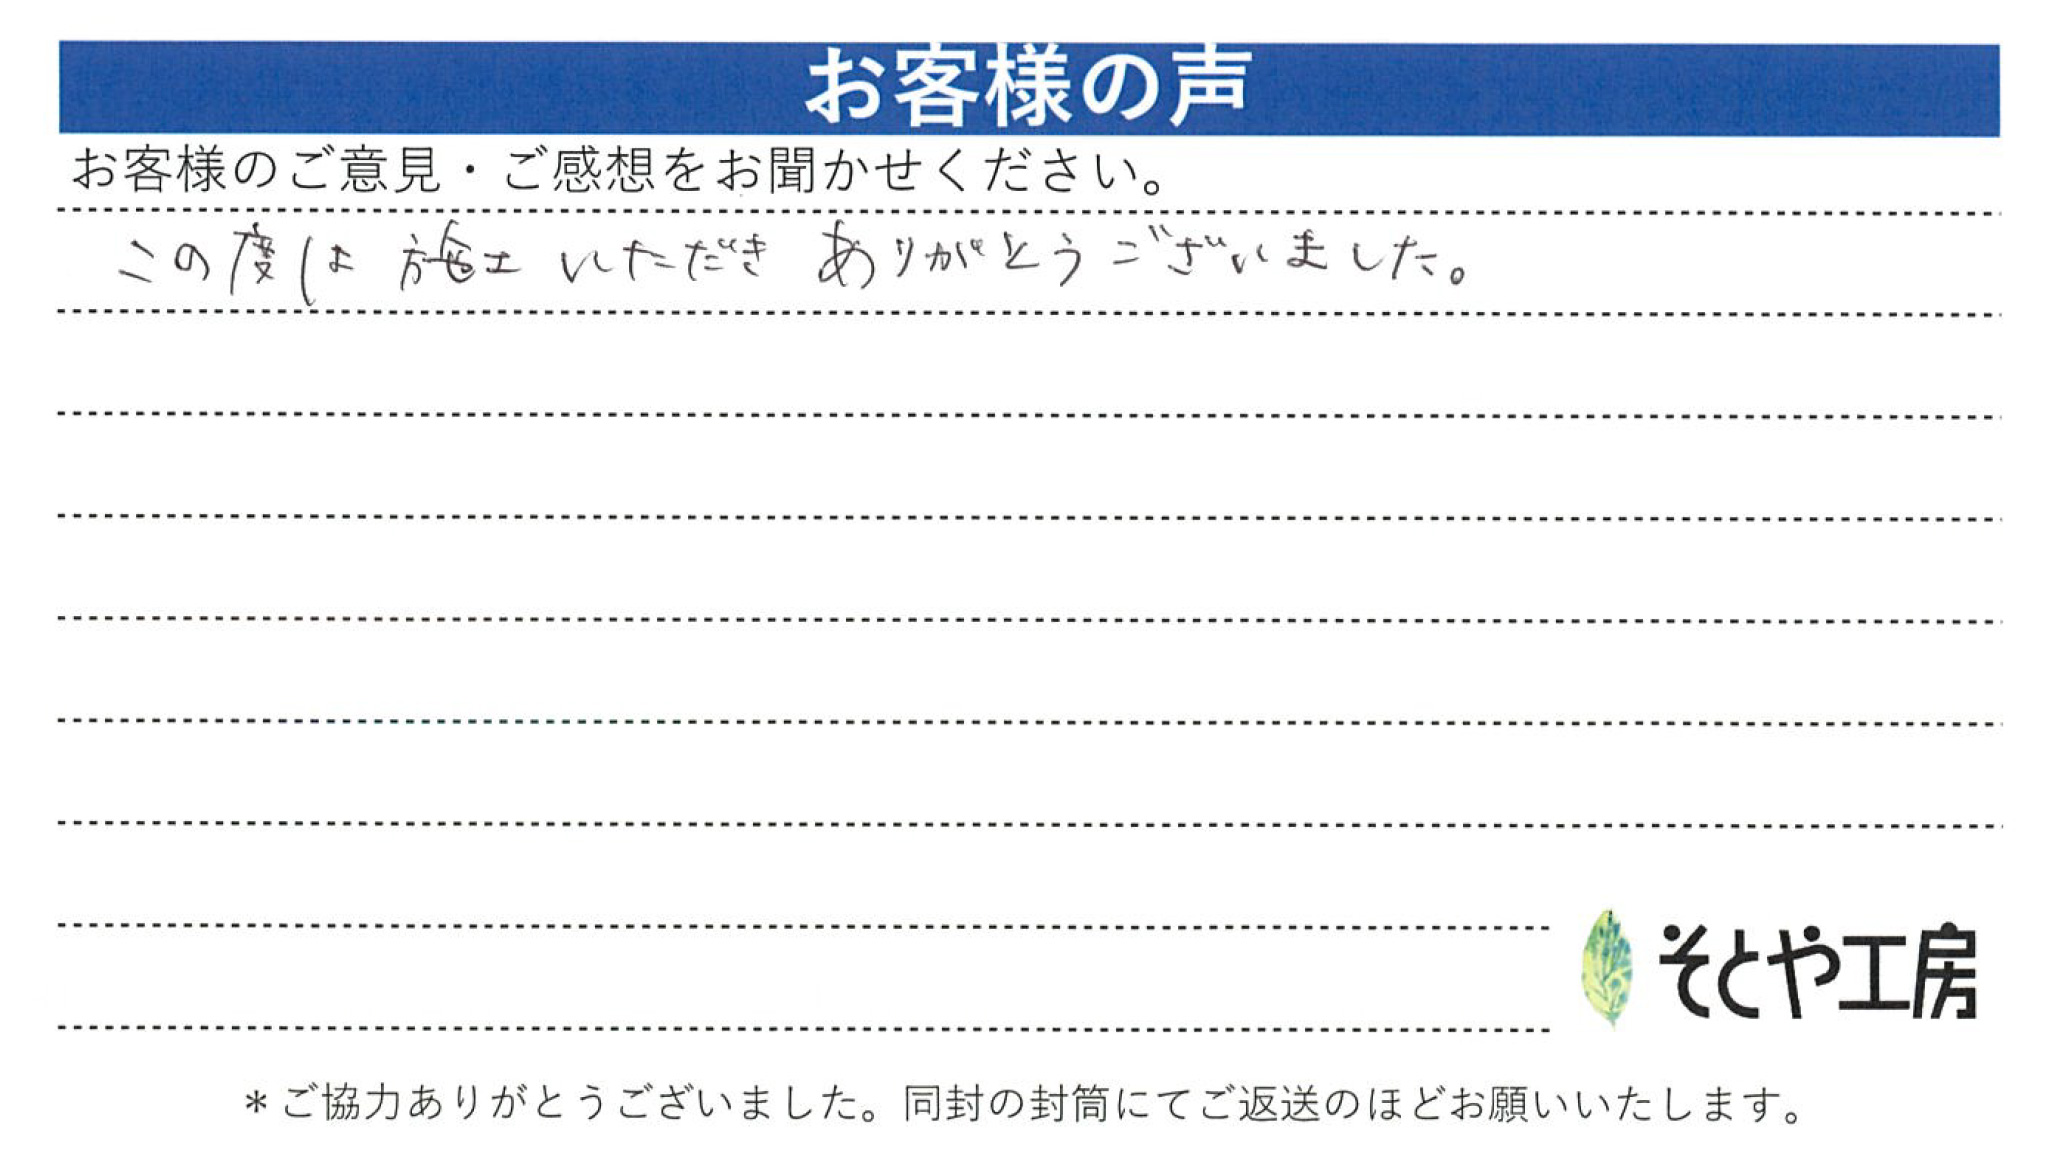 お客様の声
お客様のご意見・ご感想をお聞かせください。
この度は 施工 いただき ありがとうございました。
そとや工房
＊ご協力ありがとうございました。同封の封筒にてご返送のほどお願いいたします。